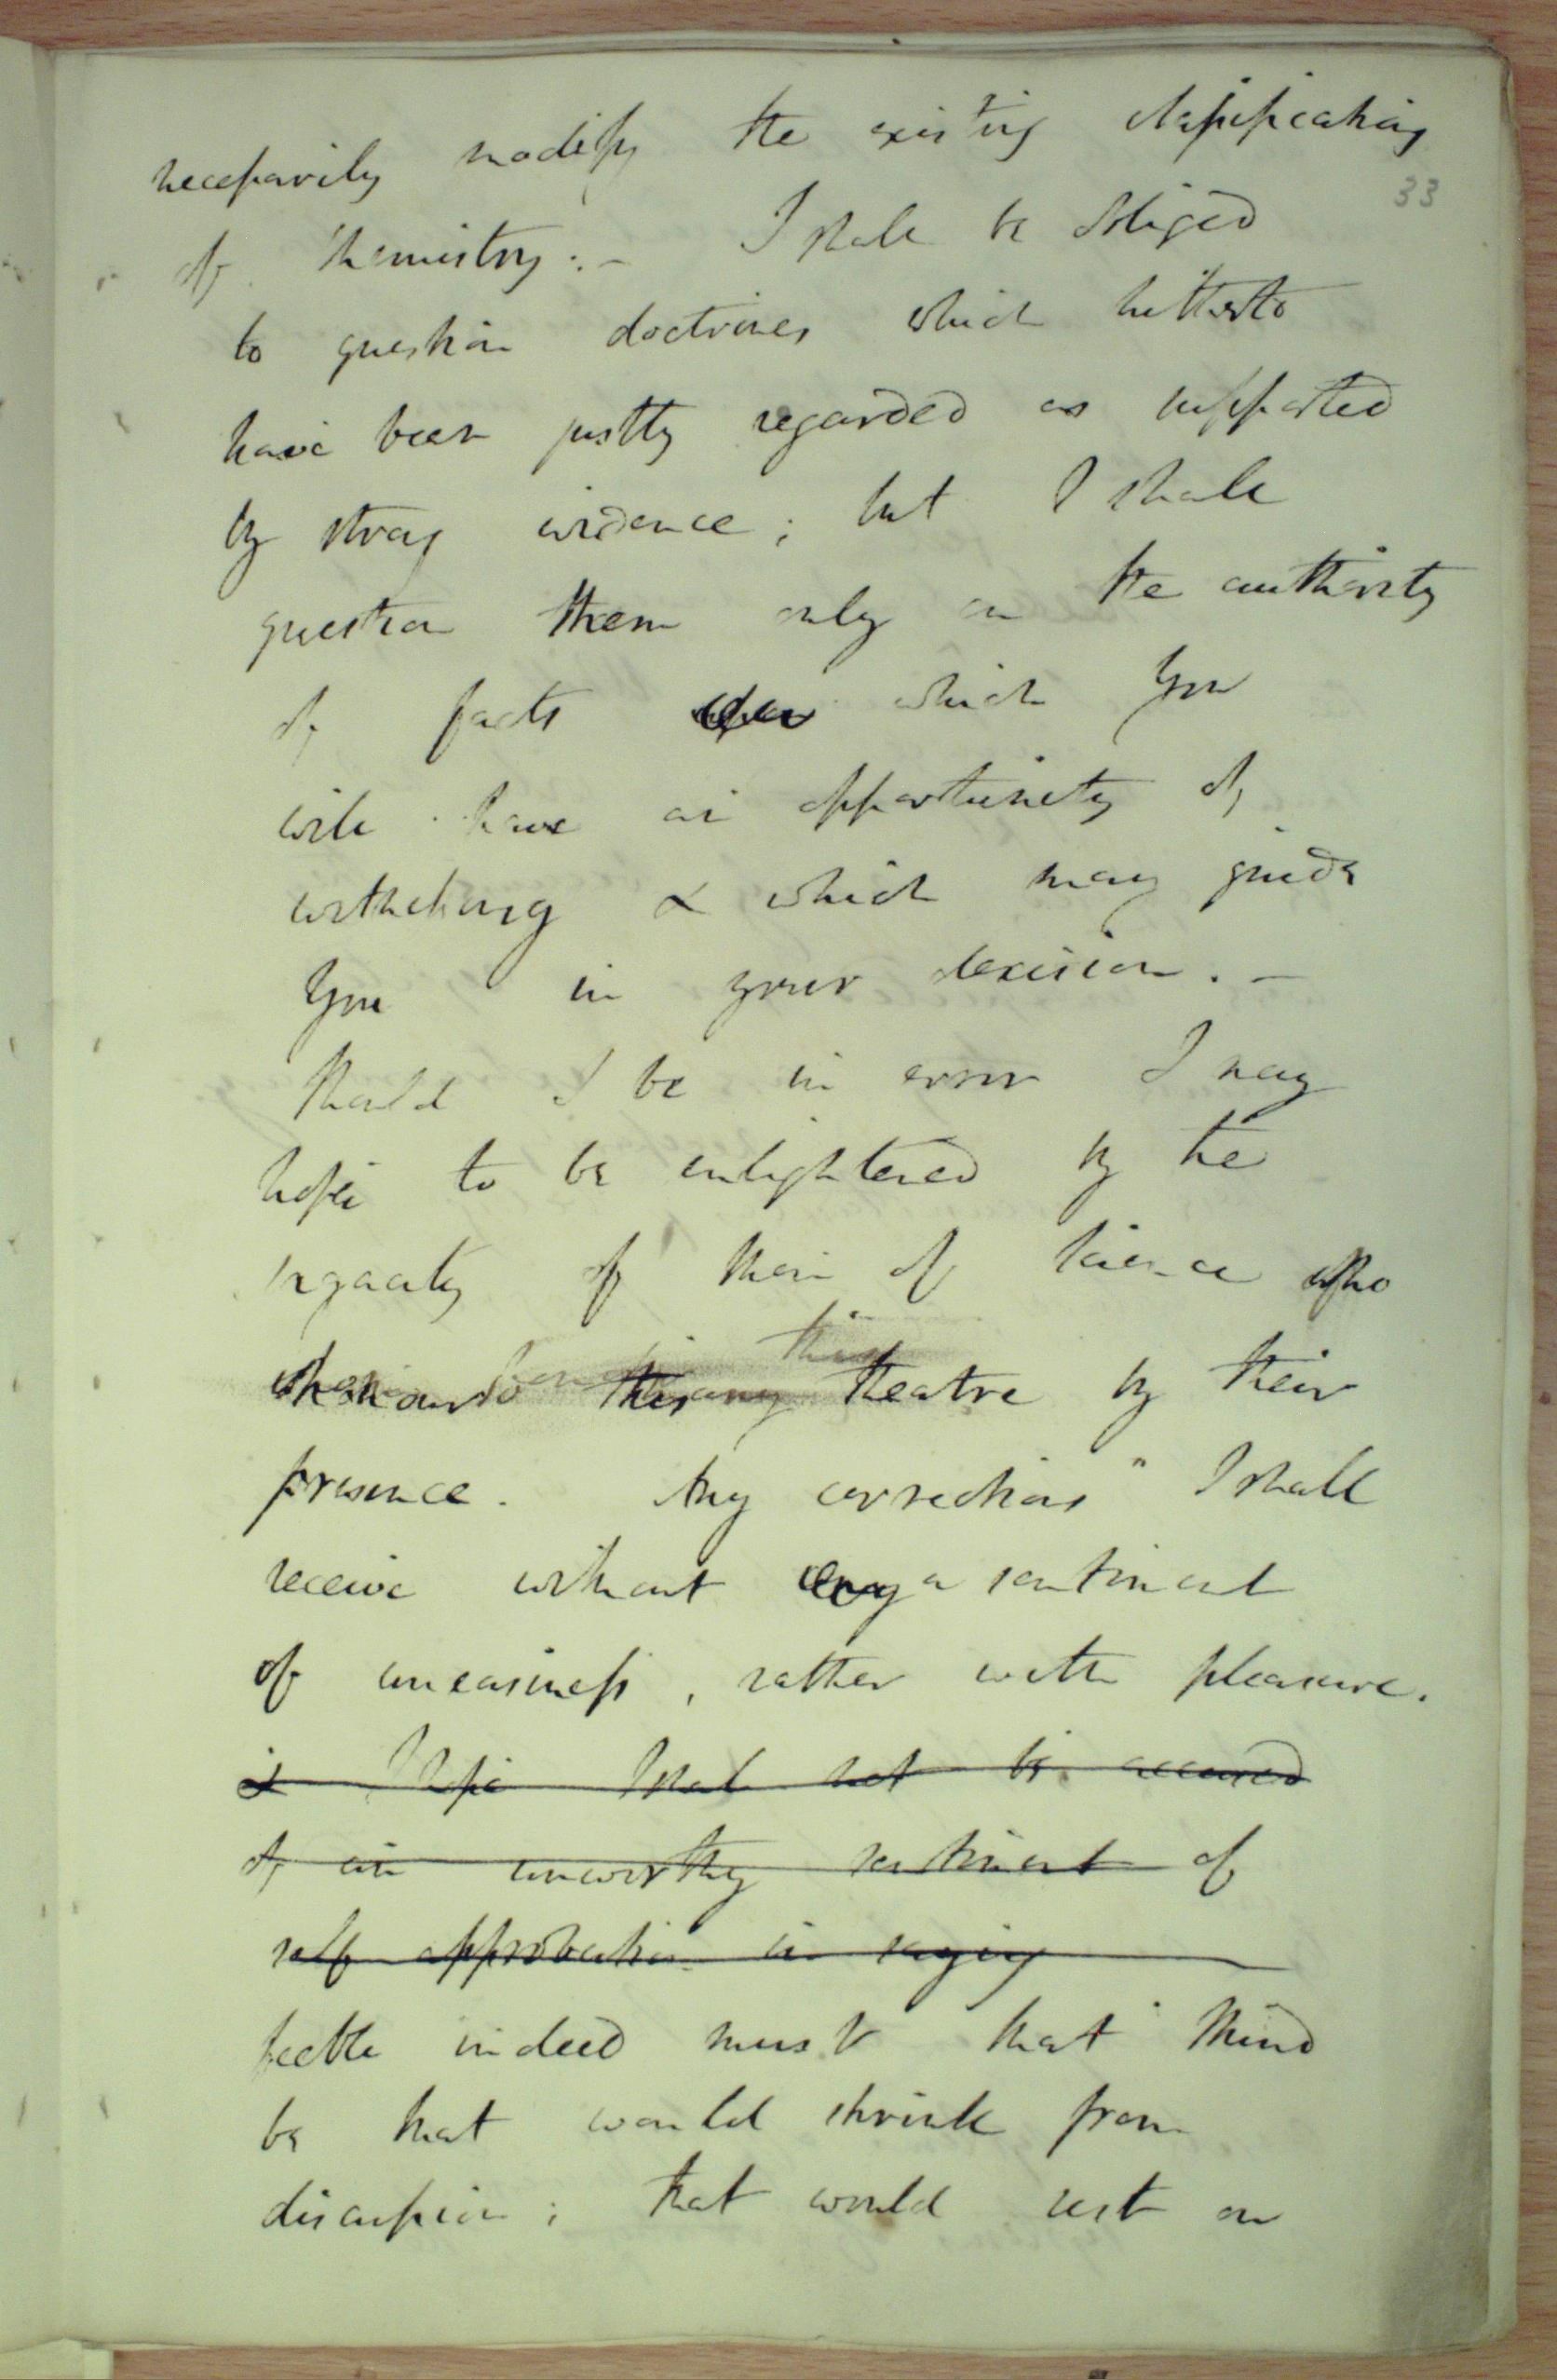 necessarily modify the existing classification
33
of chemistry. - I shall be obliged
to question doctrines which hitherto
have been justly regarded as supported
by strong evidence; but I shall
question them only on the authority
of facts which You
will have an opportunity of
witnessing & which may guide
You in your decision. -
Should I be in error I may
hope to be enlightened by the
sagacity of Men of Science who
honour this theatre by their
presence. Any corrections I shall
receive without any a sentiment
of uneasiness, rather with pleasure.
& I hope I shal not be accused
of an unworthy sentiment of
self approbation in saying
feeble indeed must that Mind
be that would shrink from
discussion; that would rest on